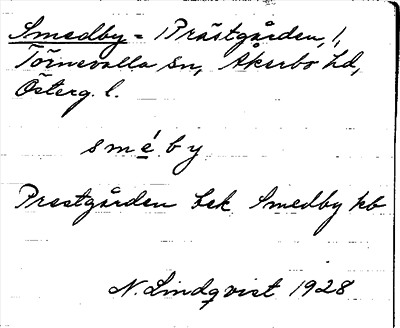 Smedby = Prästgården, 1,
Törnevalla sn, Åkerbo hd,
Österg. l.
sme´by
Prestgården bek Smedby kb
N. Lindqvist 1928